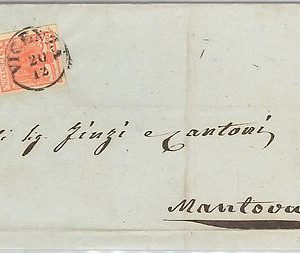 VICENZA
20
12
Jinzi e Cantoni
Mantova